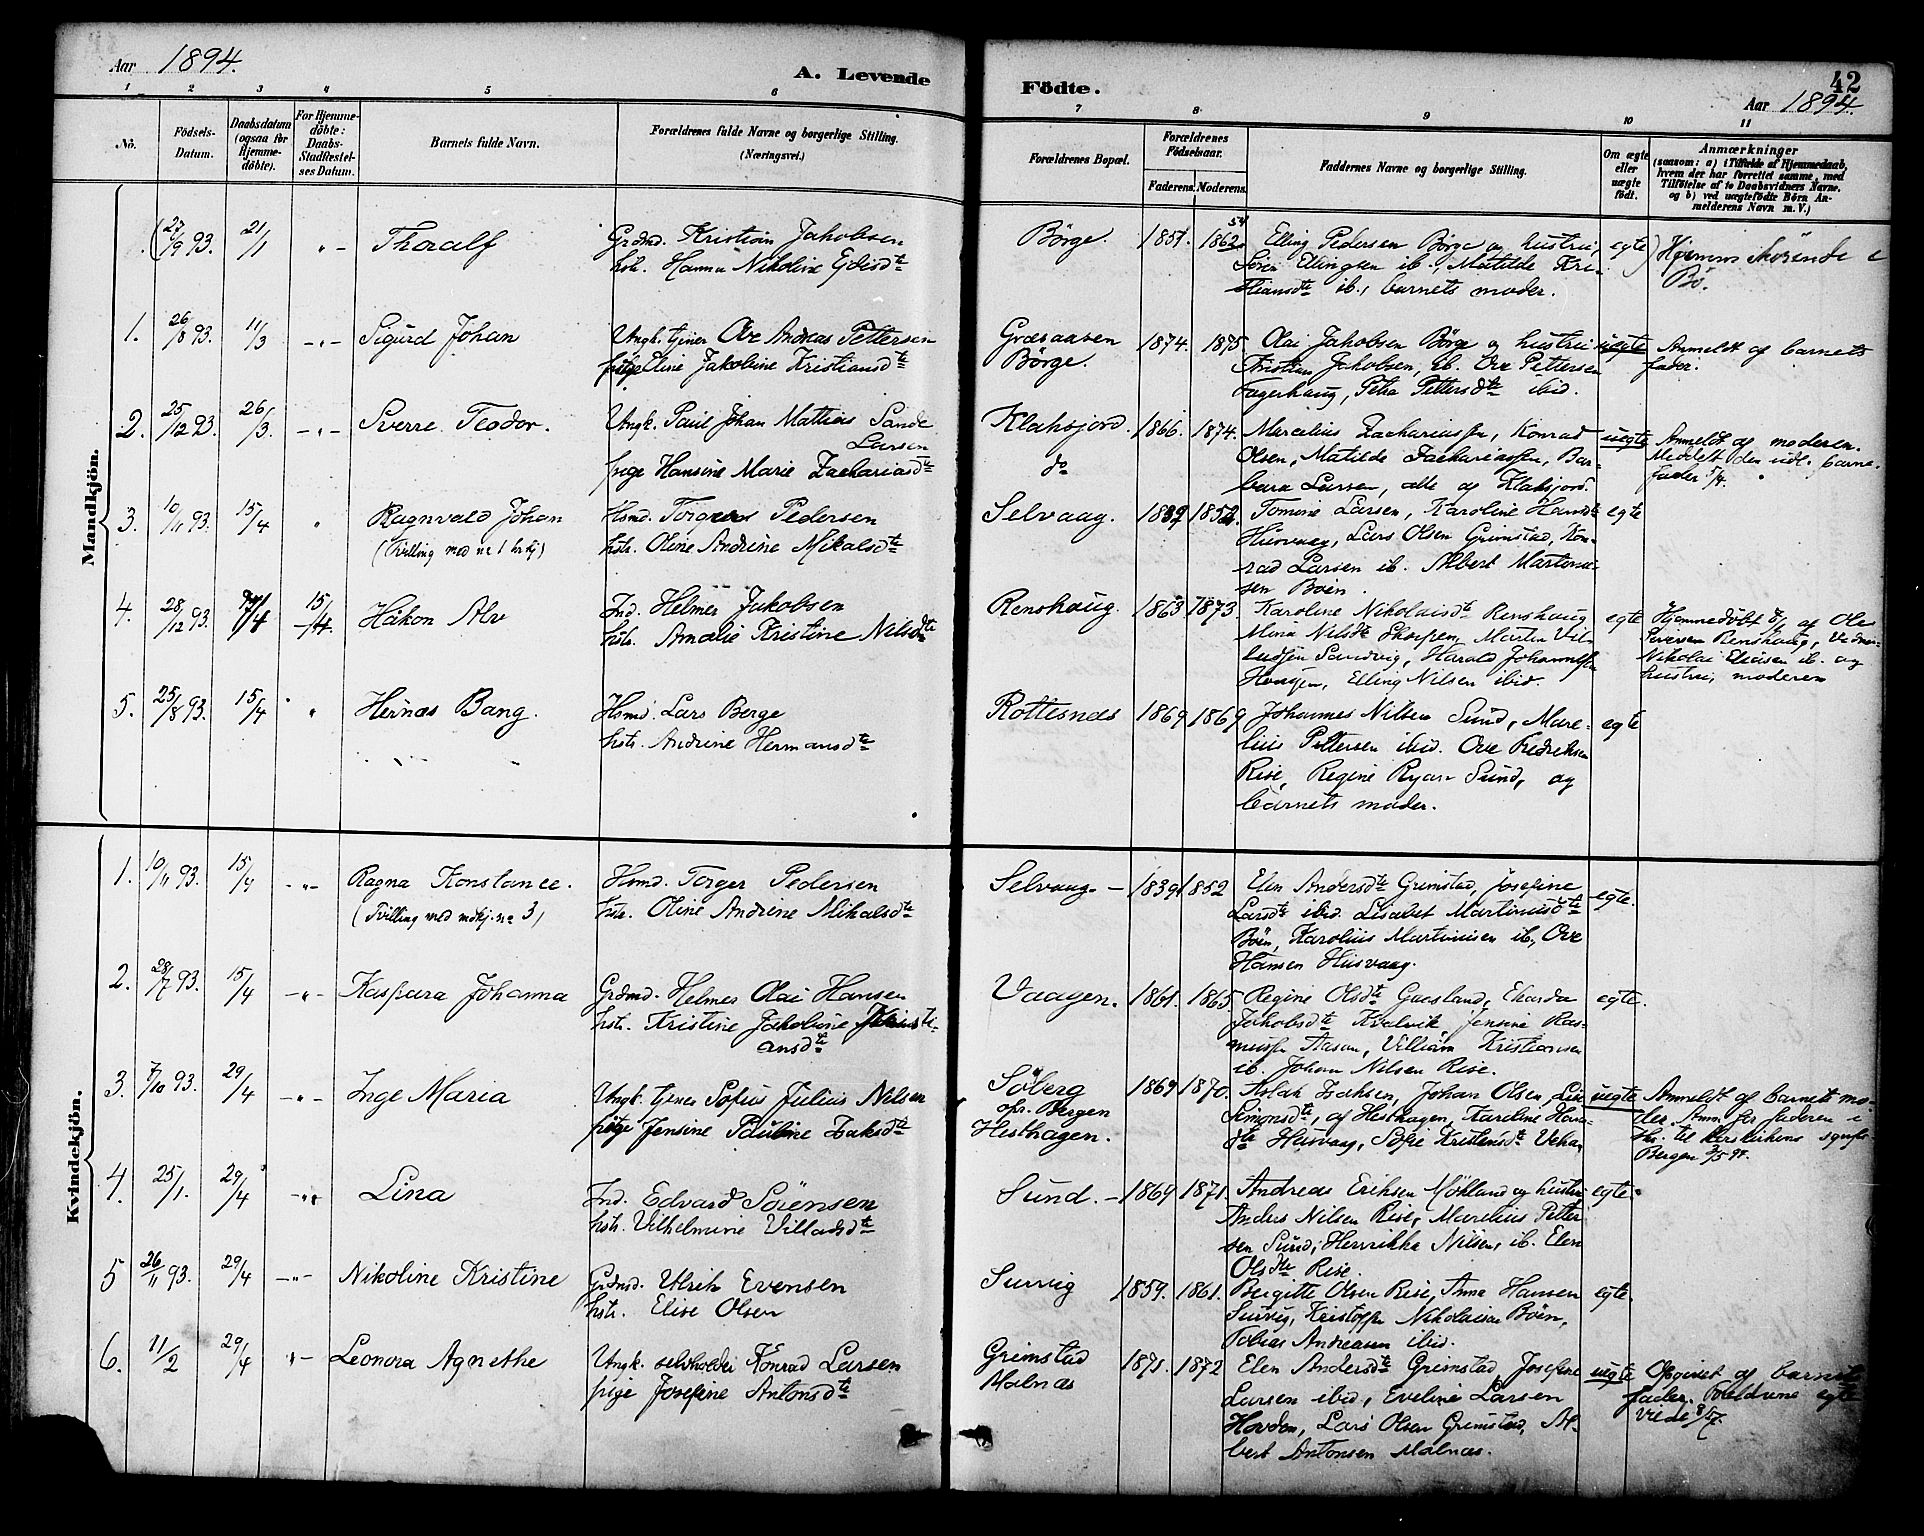 Aar 1894.
A. Levende
Födte.
42
Aar 1894.
1 2 3 4 5 6 7 8 9 10 11
No.
Födsels-Datum.
Daabsdatum (ogsaa for Hjemmedöbte).
For Hjemmedöbte: Daabs-Stadfæstelses Datum.
Barnets fulde Navn.
Forældrenes fulde Navne og borgerlige Stilling. (Næringsvei.)
Forældrenes Bopæl.
Forældrenes Födselsaar.
Faderens. Moderens.
Faddernes Navne og borgerlige Stilling.
Om ægte eller uægte födt.
Anmærkninger
(saasom: a) i Tilfælde af Hjemmedaab, hvem der har forrettet samme, med Tilföielse af to Daabsvidners Navne. og b) ved uægtefödte Börn Anmelderens Navn m. V.)
Mandkjön.
(27/9 93. 21/1 " - Thoralf
Grdmd. Kristian Jakobsen
hstr. Hanna Nikoline
Börge. 1851. 1862 54
Elling Pedersen Börge og hustru,
Sören Ellingsen ib., Matilde Kri-
stiansdte ib., barnets moder.
egte)
Bö.
1. 26/8 93. 11/3 - " - Sigurd Johan
Ungk. tjener Ove Andreas Pettersen
pige Eline Jakobine Kristiansdte
Græsaasen
Börge.
1874. 1875.
Olai Jakobsen Börge og hustru
Kristian Jakobsen, ib. Ove Pettersen
Fagerhaug, Petra Pettersdte ibid.
uegte
Anmeldt af barnets
fader.
2. 25/12 93. 26/3. - " - Sverre Teodor.
Ungk. Paul Johan Mattias Sande
Larsen
pige Hansine Marie Zachariasdte
Klaksjord.
do
1866. 1874.
Marcelius Zachariassen, Konrad
Olsen, Matilde Zachariassen, Bar-
bara Larsen, alle af Klaksjord.
uegte
Anmeldt af moderen.
Meddelt den udl. barne-
fader 5/4.
3. 10/11 93. 15/4 " Ragnvald Johan
(Tvilling med no 1 kvkj)
Hsmd. Torger Pedersen
hstr. Oline Andrine Mikalsdte
Selvaag. 1839 1852.
Tomine Larsen, Karoline Hansdte
Husvaag, Lars Olsen Grimstad, Kon-
rad Larsen ib. Albert Martinu-
sen Boen.
egte
4. 28/12 93. 15/4. Håkon Alv
Ind. Helmer Jakobsen
hstr. Amalie Kristine Nilsdte
Renshaug. 1863 1873.
Karoline Nikolaisdte Renshaug
Mina Nilsdte Morten Vil-
ladsen Sandvig, Harald Johannessen
Elling Nilsen ibid.
egte
Hjemmedöbt af Ole
Sivertsen Renshaug, Vidner
Nikolai Eliasen ib. og
hustru, moderen
5. 25/8 93. 15/4 " Hernæs Bang.
Hsmd. Lars Berge
hstr. Andrine Hermansdte
Rottesnes 1869 1869
Johannes Nilsen Sund, Mare-
lius Pettersen ibid. Ove Fredriksen
Rise, Regine Ryan Sund, og
barnets moder.
egte
Kvindekjön.
1. 10/11 93. 15/4 - " - Ragna Konstance.
(Tvilling med mdkj. no 3)
Hsmd. Torger Pedersen
hstr. Oline Andrine Mikalsdte
Selvaag - 1839 1852
Elen Andersdte Grimstad, Josefine
Larsdte ibid. Lisabet Martinusdte
Böen, Karolius Martinusen ib., Ove
Hansen Husvaag.
egte.
2. 28/7 93. 15/4 - " - Kaspara Johanna
Grdmd. Helmer Olai Hansen
hstr. Kristine Jakobine Kristi-
ansdte
Vaagen. 1861. 1865.
Regine Olsdte Guasland,
Jakobsdte Kvalvik, Jensine Ras-
mussen Aasan, Villiam Kristiansen
ib. Johan Nilsen Rise.
egte.
3. 7/10 93. 29/4 - " - Inge Maria
Ungk. tjener Sofus Julius Nilsen
pige Jensine Pauline Isaksdte
Söberg
ofr. Bergen
Hesthagen.
1869 1870.
Aslak Isaksen, Johan Olsen, Line
Simonsdte, af Hesthagen, Karoline Han-
dte Husvaag, Sofie Kristensdte
uegte
Anmeldt af barnets mo-
der. Anm. for faderen i
Bergen 3/5 94.
4. 25/1. 29/4 - " - Lina
Ind. Edvard Sörensen
hstr. Vilhelmine Villadsdte
Sund. - 1869 1871.
Andreas Eriksen Mökland og hustru
Anders Nilsen Rise, Marelius Petter-
sen Sund, Henrikka Nilsen, ib. Elen
Olsdte Rise.
egte.
5 26/11 93. 29/4 - " - Nikoline Kristine
Grdmd. Ulrik Evensen
hstr. Elise Olsen
Survig 1859. 1861.
Birgitte Olsen Rise, Anna Hansen
Survig, Kristoffer Nikolaisen Böen,
Tobias Andreasen ibid.
egte.
6. 11/2 29/4 " - Leonora Agnethe
Ungk. selvholder Konrad Larsen
pige Josefine Antonsdte
Grimstad
Malnæs
1871. 1872
Elen Andersdte Grimstad Josefine
Larsen ibid, Eveline Larsen
Hovden, Lars Olsen Grimstad, Al-
bert Antonsen Malnæs.
uegte
Opgivet af barnets
fader. Foreldrene egte
viede